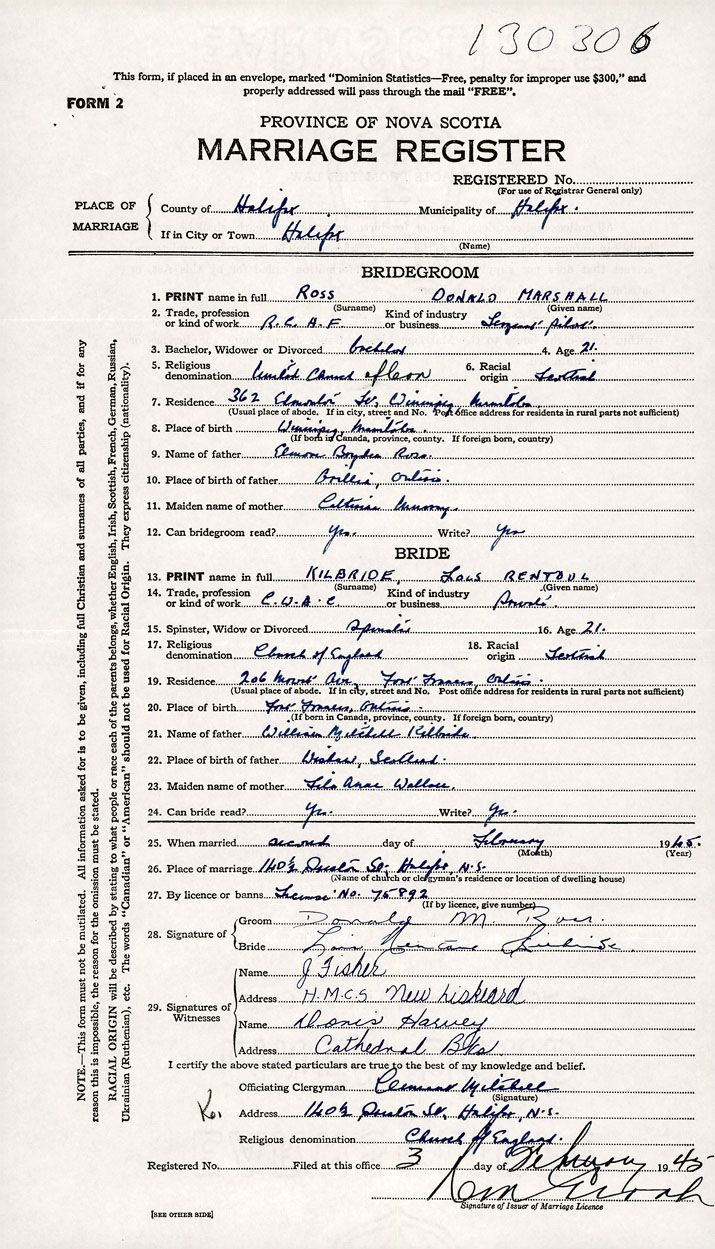 130306
This form, if placed in an envelope, marked "Dominion Statistics—Free, penalty for improper use $300," and
properly addressed will pass through the mail "FREE".
FORM 2
PROVINCE OF NOVA SCOTIA
MARRIAGE REGISTER
REGISTERED No.
(For use of Registrar General only)
PLACE OF MARRIAGE
County of Halifax Municipality of Halifax.
If in City or Town Halifax
(Name)
BRIDEGROOM
1. PRINT name in full ROSS DONALD MARSHALL
(Surname) (Given name)
2. Trade, profession or kind of work R.C.A.F. Kind of industry or business Sergeant Pilot.
3. Bachelor, Widower or Divorced bachelor 4. Age 21.
5. Religious denomination United Church of Can 6. Racial origin Scottish
7. Residence 362 Edmonton St. Winnipeg Manitoba.
(Usual place of abode. If in city, street and No. Post office address for residents in rural parts not sufficient)
8. Place of birth Winnipeg, Manitoba.
(If born in Canada, province, county. If foreign born, country)
9. Name of father Elmore Boyden Ross.
10. Place of birth of father Orillia, Ontario.
11. Maiden name of mother Murray
12. Can bridegroom read? Yes. Write? Yes
BRIDE
13. PRINT name in full KILBRIDE, LOIS RENTOUL
(Surname) (Given name)
14. Trade, profession or kind of work C.W.A.C. Kind of industry or business Private.
15. Spinster, Widow or Divorced Spinster 16. Age 21.
17. Religious denomination Church of England 18. Racial origin Scottish
19. Residence 206 Mount Ave, Fort Frances, Ontario.
(Usual place of abode. If in city, street and No. Post office address for residents in rural parts not sufficient)
20. Place of birth Fort Frances, Ontario.
(If born in Canada, province, county. If foreign born, country)
21. Name of father William Mitchell Kilbride.
22. Place of birth of father Wishaw, Scotland.
23. Maiden name of mother Anne Wallace.
24. Can bride read? Yes. Write? Yes.
25. When married second day of February 1945.
(Month) (Year)
26. Place of marriage 140½ St. Halifax N.S.
(Name of church or clergyman's residence or location of dwelling house)
27. By licence or banns License No. 75892
(If by licence, give number)
28. Signature of
Groom Donald M. Ross.
Bride Lois Rentoul Kilbride.
29. Signatures of Witnesses
Name J Fisher
Address H.M.C.S New Liskeard
Name Doris Harvey
Address Cathedral Bks.
I certify the above stated particulars are true to the best of my knowledge and belief.
Officiating Clergyman Mitchell
(Signature)
Address 140½ St, Halifax, N.S.
Religious denomination Church of England.
Registered No. Filed at this office 3 day of February 1945
Signature of Issuer of Marriage Licence
[SEE OTHER SIDE]
NOTE.—This form must not be mutilated. All information asked for is to be given, including full Christian and surnames of all parties, and if for any
reason this is impossible, the reason for the omission must be stated.
RACIAL ORIGIN will be described by stating to what people or race each of the parents belongs, whether English, Irish, Scottish, French, German, Russian,
Ukrainian (Ruthenian), etc. The words "Canadian" or "American" should not be used for Racial Origin. They express citizenship (nationality).